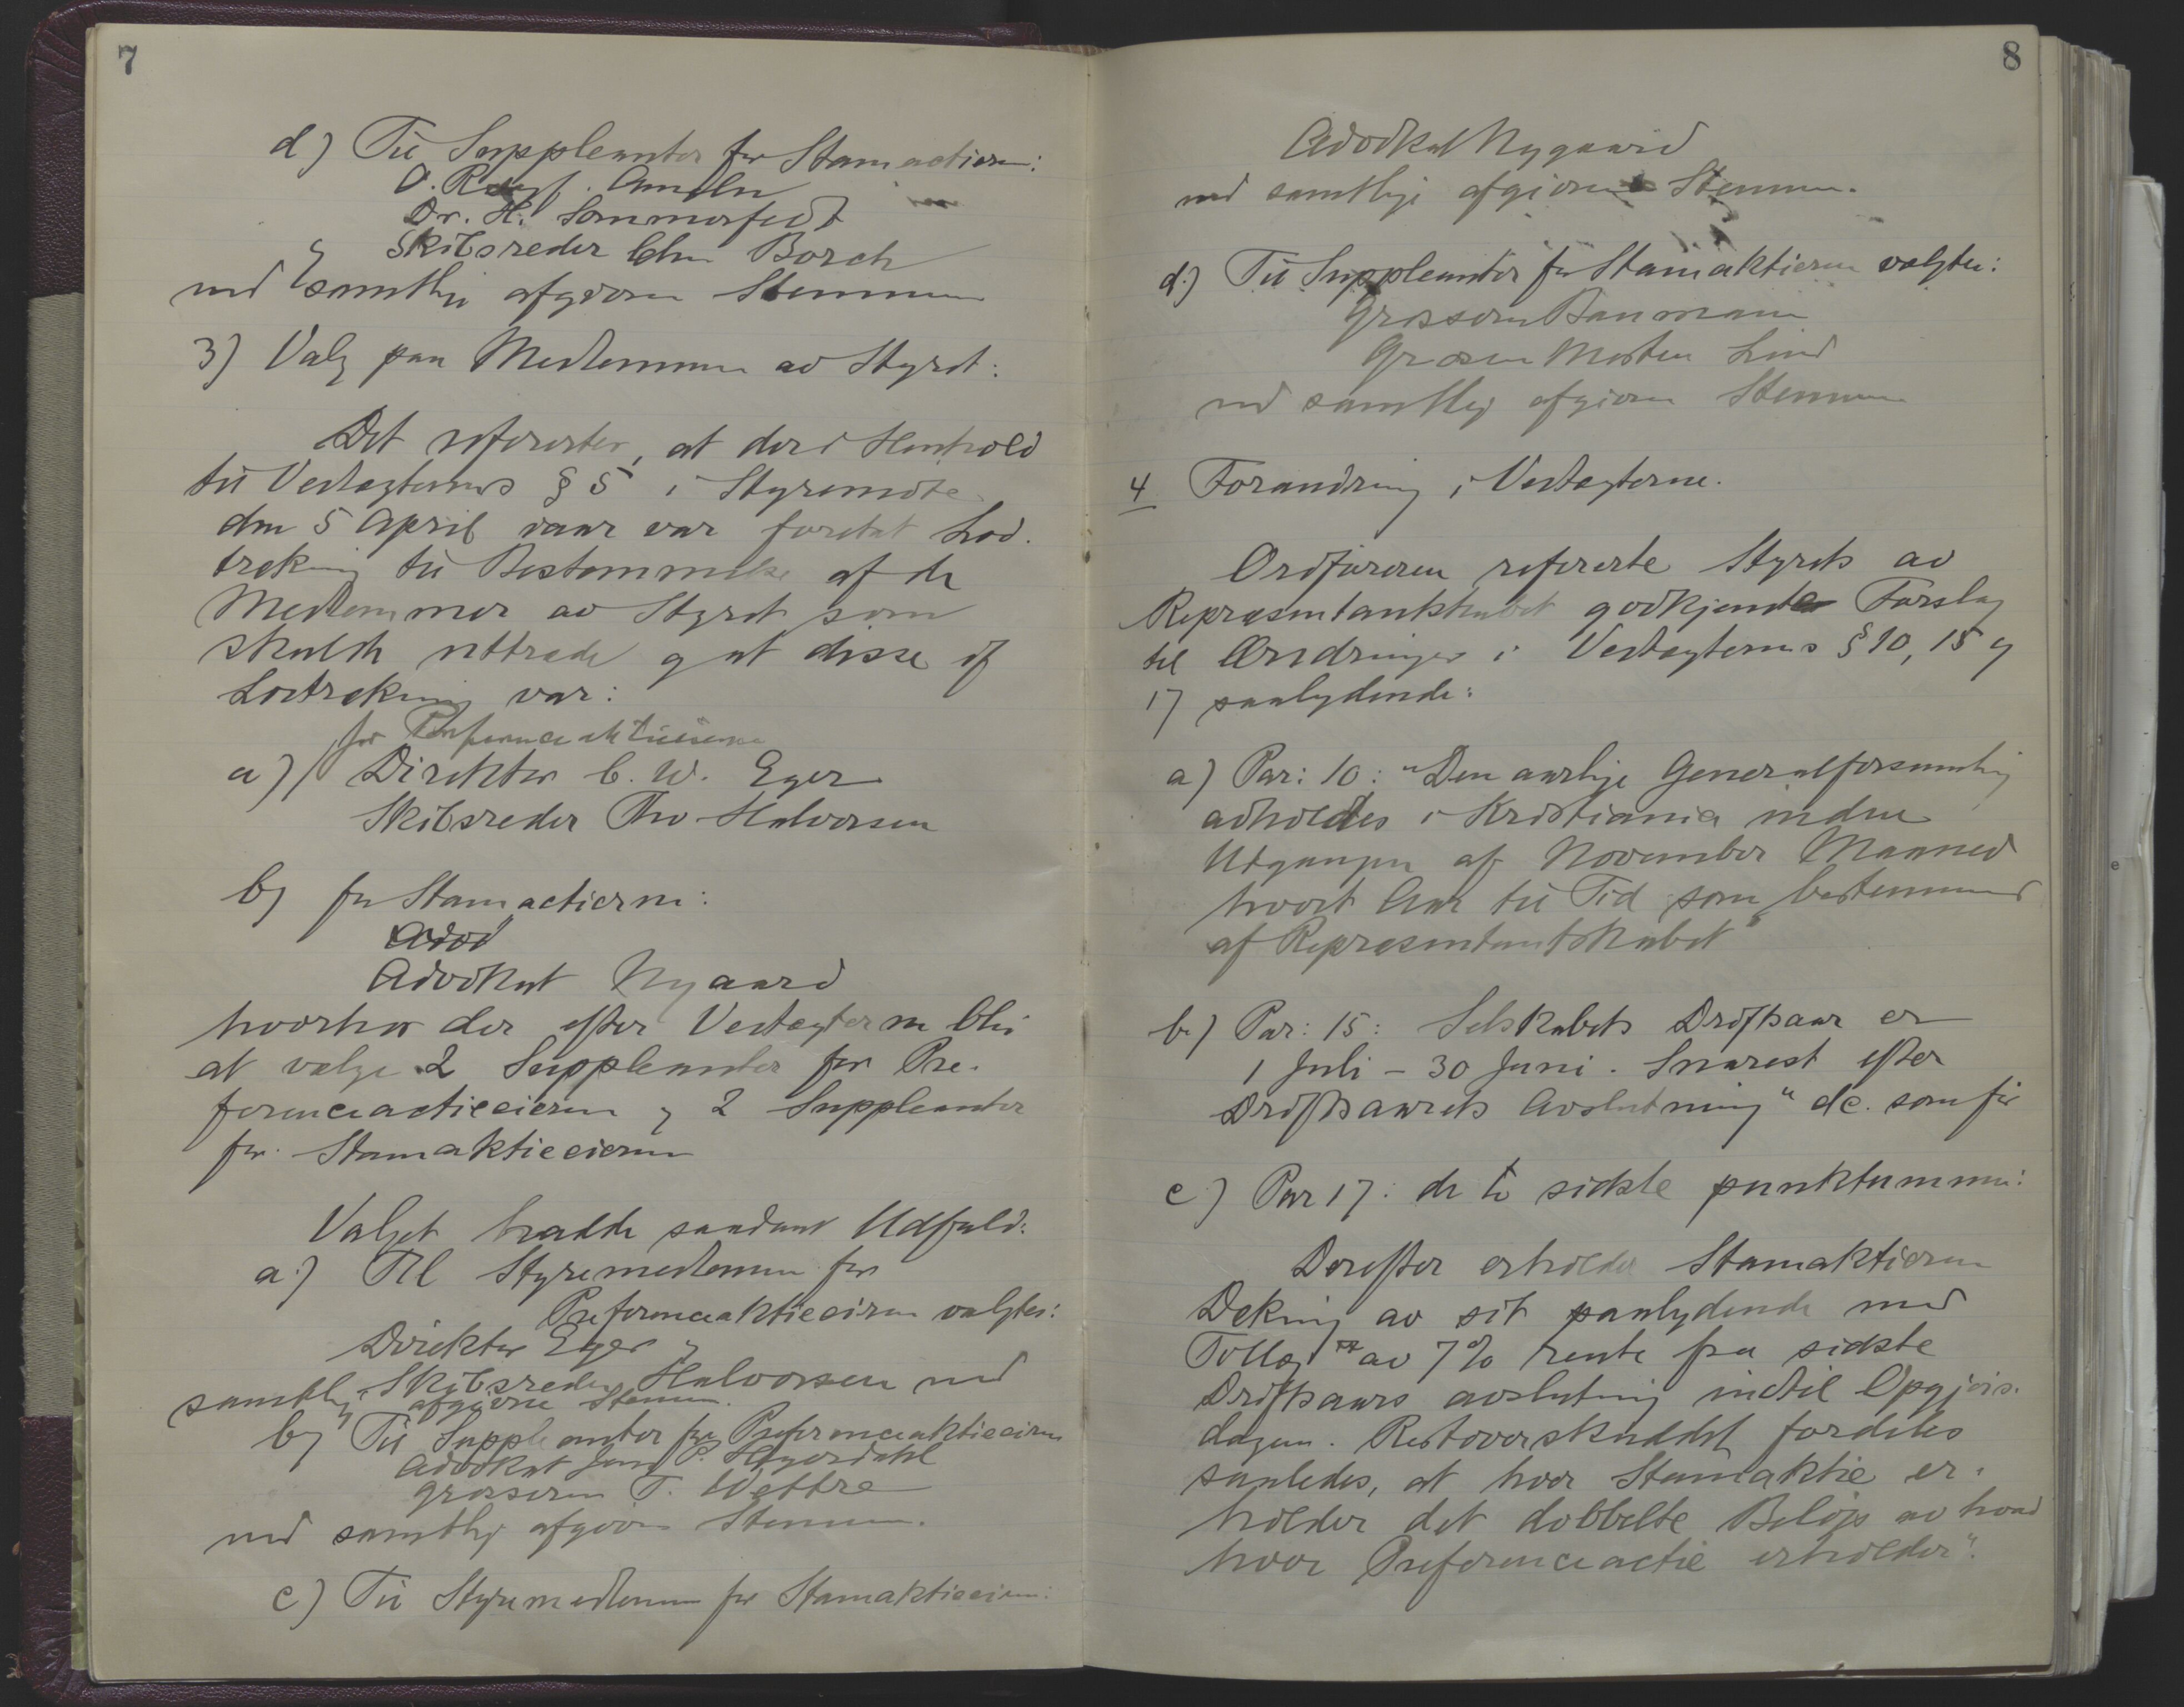 7
d) Til Suppleanter for Stamactiern:
O. Ameln
Dr. H. Sommerfeldt
Skibsreder Chr. Borch
med samtlige afgivne Stemmer
3) Valg paa Medlemmer av Styret:
Det refererter, at der i Henhold
til Vedtægternes § 5 i Styremøte
den 5 April var foretat Lod-
trekning til Bestemmelse af de
Medlemmer av Styret som
skulde uttræde og at disse ef
Lodtrekning var:
for Preferenceaktieeierne
a) Direktør C. W. Eger
Skibsreder Thv. Halvorsen
b) for Stamactierne:
Advo
Advokat Nygaard
hvorhos der efter Vedtægterne blir
at vælge 2 Suppleanter for Pre-
ferenceactieeierne og 2 Suppleanter
for Stamaktieeierne
Valget hadde saadant Udfald:
a) Til Styremedlemmer for
Preferenceaktieeierne valgtes:
Direktør Eger og
Skibsreder Halvorsen med
samtlige afgivne Stemmer.
b) Til Suppleanter for Preferenceaktieeierne
Advokat Jens P. Heyerdahl
Grosserer T. Wettre
med samtlige afgivne Stemmer.
c) Til Styremedlemmer for Stamaktieeierne:
8
Advokat Nygaard
med samtlige afgivne Stemmer.
d) Til Suppleanter for Stamaktierne valgtes:
Grosserer Baumann
Grosserer Morten Lind
med samtlige afgivne Stemmer
4 Forandring i Vedtægterne.
Ordføreren refererte Styrets av
Repræsentantskabet godkjendte Forslag
til Ændringer i Vedtægternes § 10, 15 og
17 saalydende:
a) Par: 10: "Den aarlige Generalforsamling
adholdes i Kristiania inden
Udgangen af November Maaned
hvert Aar til Tid som bestemmes
af Repræsentantskabet"
b.) Par: 15: Selskabets Driftsaar er
1 Juli - 30 Juni. Snarest efter
Driftsaarets Avslutning" etc. som før
c) Par 17: de to sidste punktummer:
Derefter erholder Stamaktierne
Dekning av sit paalydende med
Tillæg av 7% rente fra sidste
Driftsaars avslutning indtil Opgjørs-
dagen. Restoverskuddet fordeles
saaledes, at hver Stamaktie er-
holder det dobbelte Beløp av hvad
hver Preferenceactie erholder".